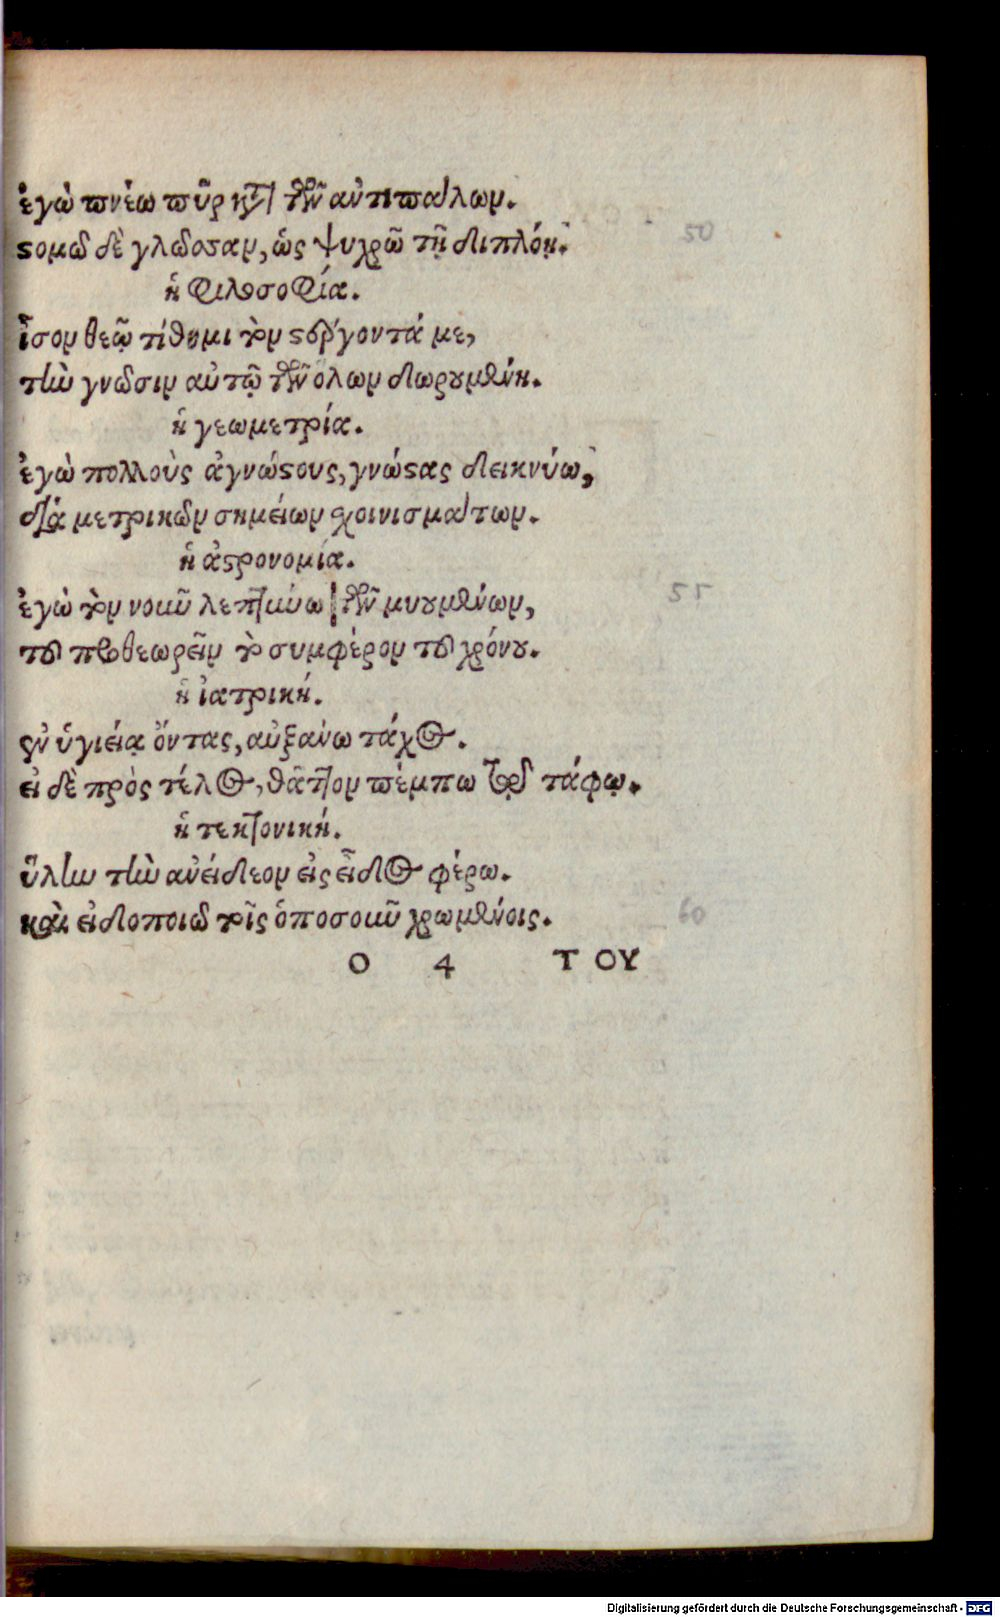 ἐγὼ πνέω πῦρ κατὰ τῶν ἀντιπάλων.
στομῶ δὲ γλῶσσαν, ὡς ψυχρῶ τῇ διπλόῃ.
ἡ Φιλοσοφία.
ἶσον θεῷ τίθημι τὸν στέργοντά με,
τὴν γνῶσιν αὐτῷ τῶν ὅλων δωρουμένη.
ἡ γεωμετρία.
ἐγὼ πολλοὺς ἀγνώστους, γνώστας δεικνύω,
διὰ μετρικῶν σημείων σχοινισμάτων.
ἡ ἀστρονομία.
ἐγὼ τὸν νοῦν λεπτύνω τῶν μυουμένων,
τοῦ προθεωρεῖν τὸ συμφέρον τοῦ χρόνου.
ἡ ἰατρική.
ἐν ὑγιείᾳ ὄντας, αὐξάνω τάχος.
εἰ δὲ πρὸς τέλος, θᾶττον πέμπω τῷ τάφῳ.
ἡ τεκτονική.
ὕλην τὴν ἀνείδεον εἰς εἶδος φέρω.
καὶ εἰδοποιῶ τοῖς ὁποσοῦν χρωμένοις.
O 4 ΤΟΥ
50
55
60
Digitalisierung gefördert durch die Deutsche Forschungsgemeinschaft - DFG